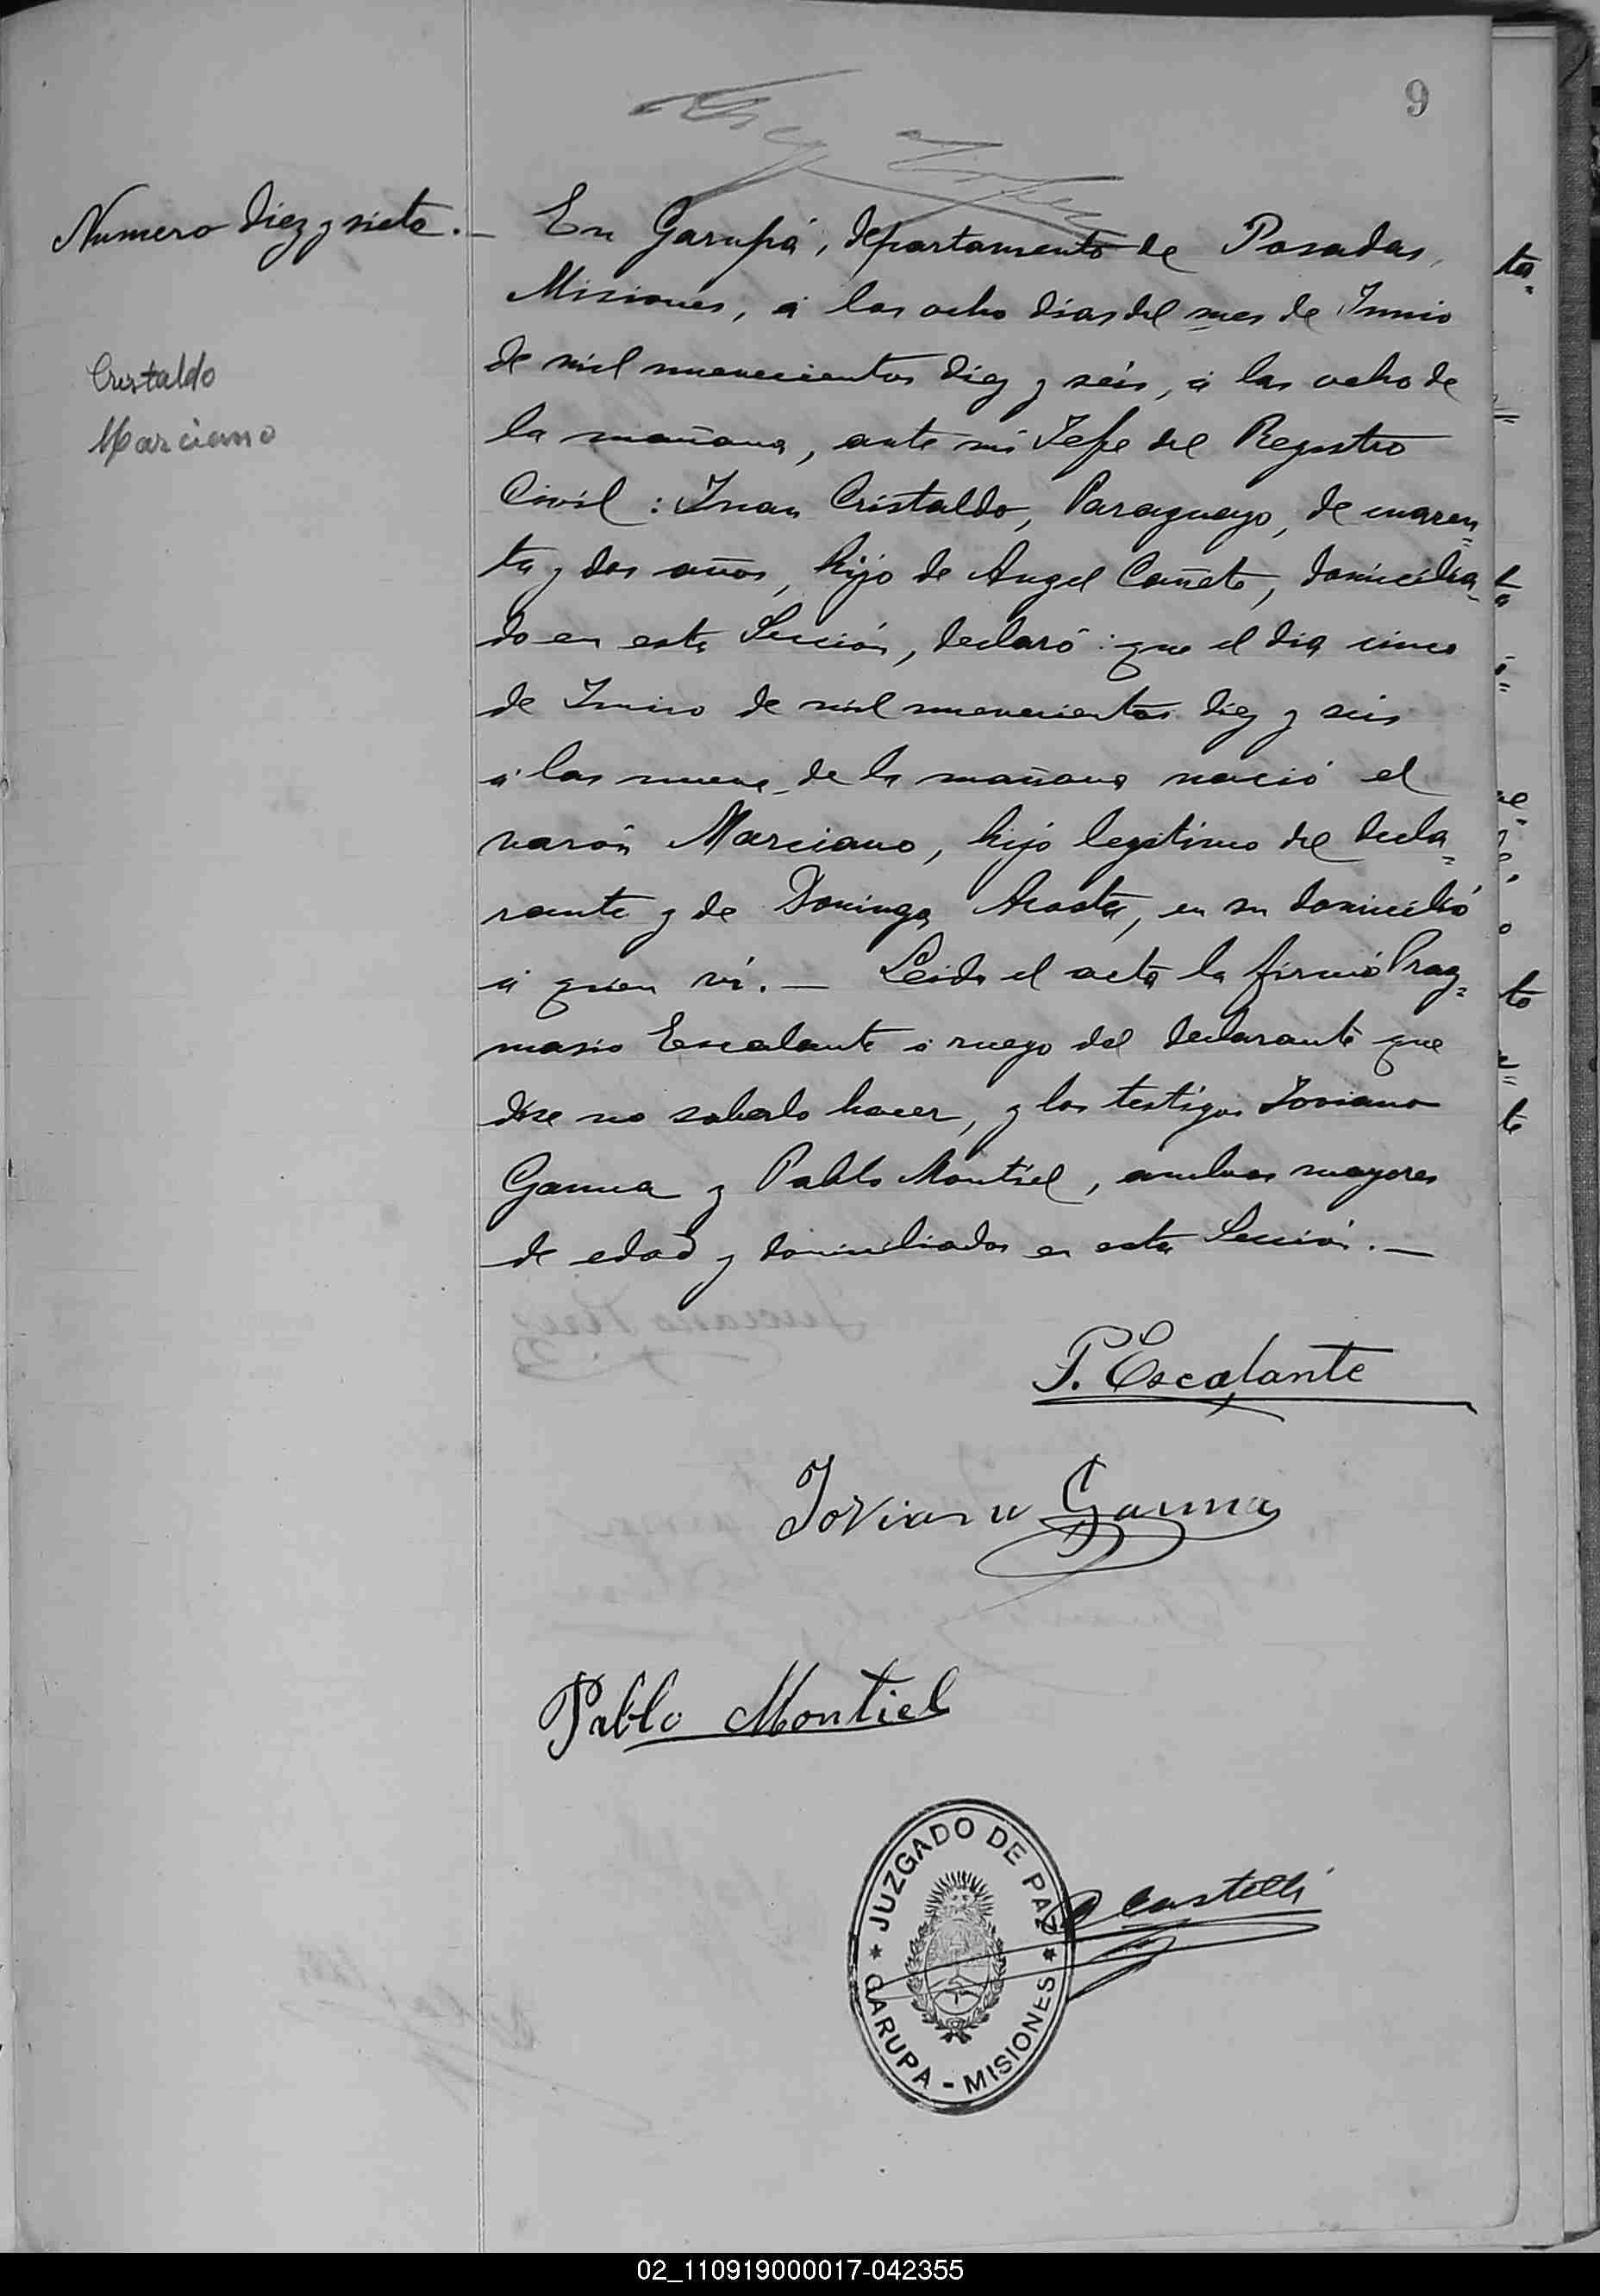 9
Numero diez y siete. —
Cristaldo
Marciano
En Garupá, departamento de Posadas,
Misiones, á los ocho dias del mes de Junio
de mil nuevecientos diez y seis, á las ocho de
la mañana, ante mi Jefe del Registro
Civil : Juan Cristaldo, Paraguayo, de cuaren=
ta y dos años, hijo de Angel Cañete, domicilia=
do en esta Sección, declaró : que el dia cinco
de Junio de mil nuevecientos diez y seis
á las nueve de la mañana nació el
varón Marciano, hijo legitimo del decla=
rante y de Dominga Acosta, en su domicilió
á quien ví. — Leida el acta la firmó Prag=
masio Escalante á ruego del declarante que
dise no saberlo hacer, y los testigos Joviano
Gauna y Pablo Montiel, ambos mayores
de edad y domiciliados en esta Sección. —
P. Escalante
Joviano Gauna
Pablo Montiel
JUZGADO DE PAZ
GARUPA - MISIONES
Castelli
02_110919000017-042355